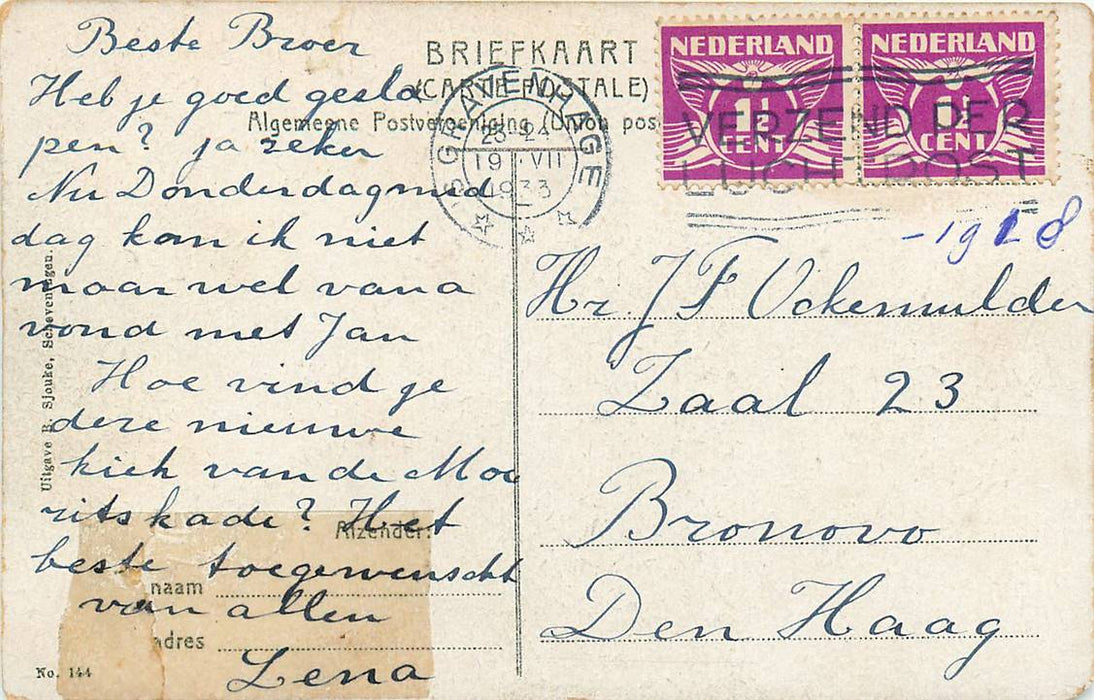 Beste Broer
Heb je goed gesla
pen? ja zeker
Nu Donderdagmid
dag kom ik niet
maar wel van a
vond met Jan
Hoe vind je
deze nieuwe
kiek van de Mou
ritskade? Het
beste toegewenscht
van allen
Lena
BRIEFKAART
(CARTE POSTALE)
Algemeene Postvereeniging (Union pos
Uitgave R. Sjouke, Scheveningen.
Afzender:
naam
adres
No. 144
'S GRAVENHAGE
19 VII
1933
NEDERLAND
1½
CENT
NEDERLAND
1½
CENT
VERZEND PER
LUCHTPOST
-19 8
Hr. J F Ockemulder
Zaal 23
Bronovo
Den Haag